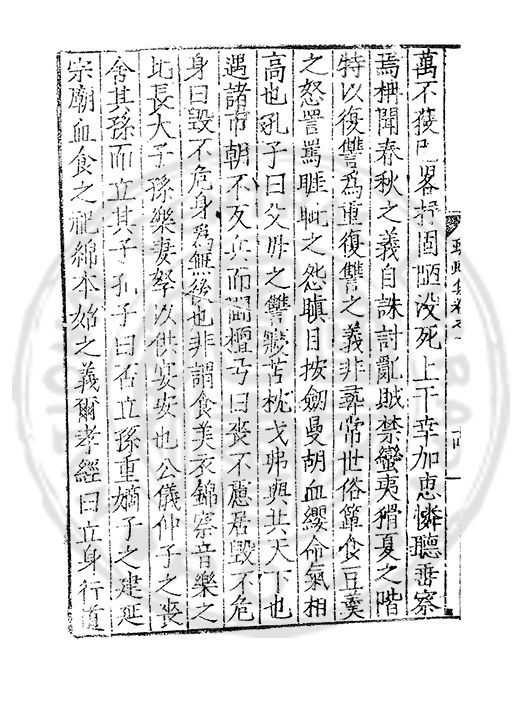 萬不獲已畧抒固陋没死上干幸加忠憐聽垂察
焉柟聞春秋之義自誅討亂賊禁蠻夷猾夏之階
特以復讐爲重復讐之義非尋常世俗簞食豆羹
之怒詈罵睚眦之怨瞋目按劒曼胡血纓命氣相
高也孔子曰父母之讐寢苫枕戈弗與共天下也
遇諸市朝不反兵而鬪檀弓曰喪不慮居毀不危
身曰毀不危身爲無後也非謂食美衣錦察音樂之
長大子孫樂妻孥以供宴安也公儀仲子之喪
舍其孫而立其子孔子曰否立孫重嫡子之建延
宗廟血食之祀綿本始之義爾孝經曰立身行道